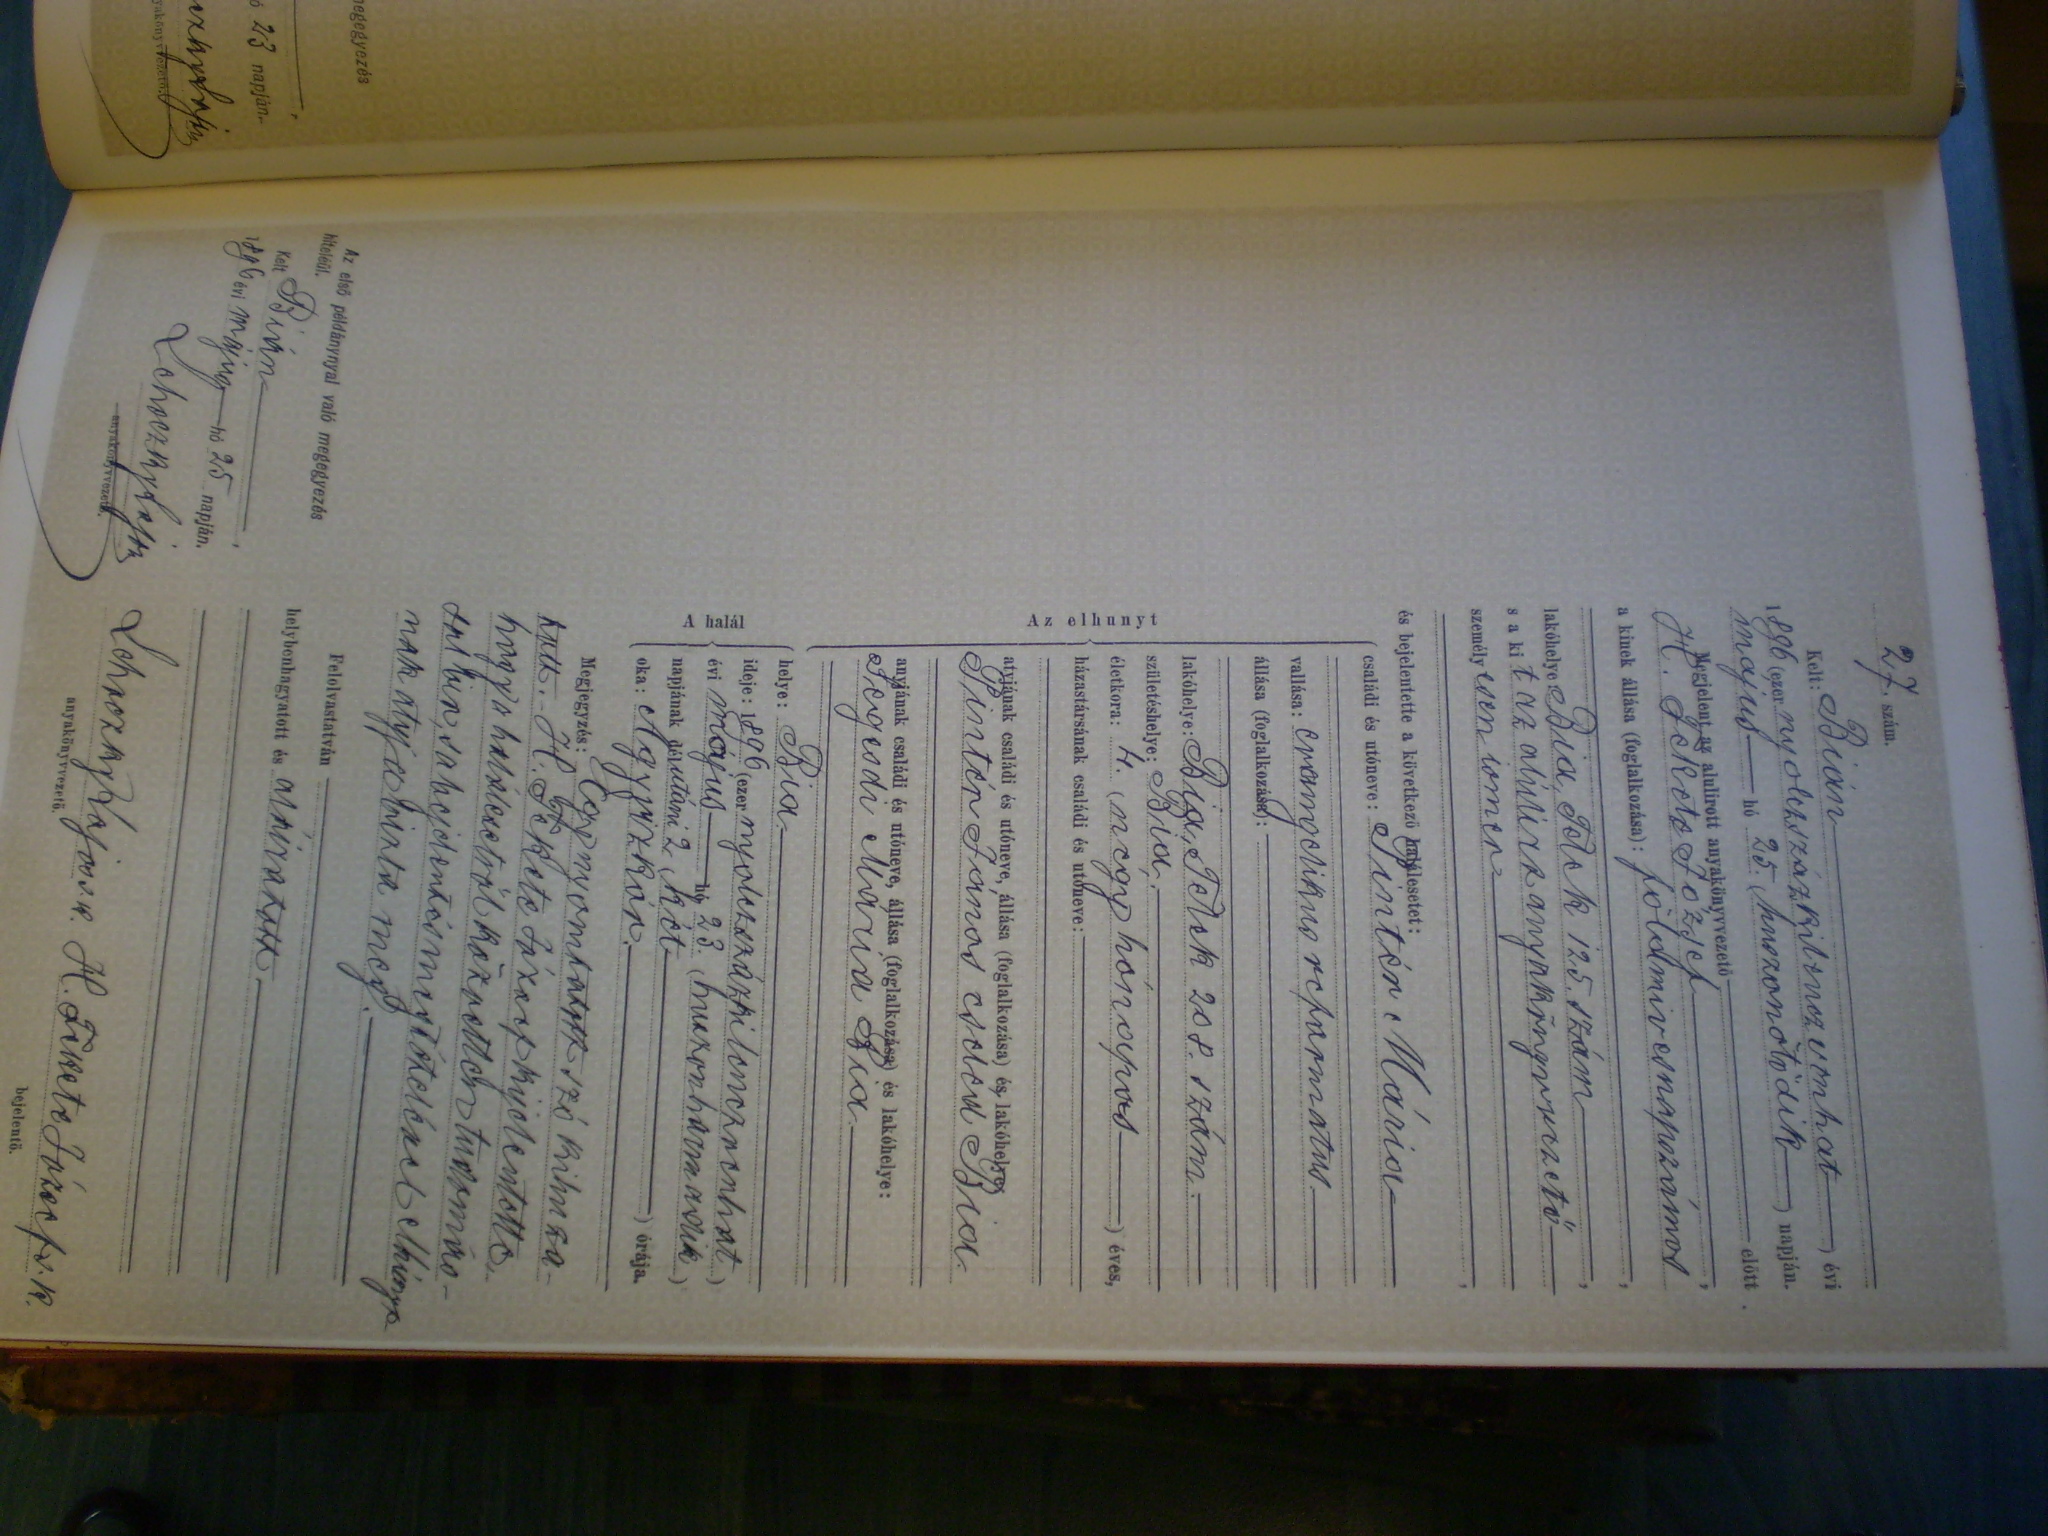 27. szám.
Kelt: Bián
1896 (ezer nyolczszázkilenczvenhat) évi
május hó 25. (huszonötödik) napján.
Megjelent az alulirott anyakönyvvezető előtt
H. Fekete József,
a kinek állása (foglalkozása): földmives napszámos,
lakóhelye Bia, Telek 125 szám,
s a kit az alulirt anyakönyvvezető
személyesen ismer,
és bejelentette a következő halálesetet:
Az elhunyt
családi és utóneve: Pintér Mária
vallása: evangelikus reformatus
állása (foglalkozása):
lakóhelye: Bia, Telek 208. szám.
születéshelye: Bia.
életkora: 4. (négy hónapos) éves,
házastársának családi és utóneve:
atyjának családi és utóneve, állása (foglalkozása) és lakóhelye:
Pintér János cseléd Bia.
anyjának családi és utóneve, állása (foglalkozása) és lakóhelye:
Mária Bia.
A halál
helye: Bia.
ideje: 1896 (ezer nyolczszázkilenczvenhat)
évi május hó 23. (huszonharmadik)
napjának délutáni 2 (két) órája.
oka: Agyrázkór.
Megjegyzés: Egy nyomtatott szó kihuza-
tott. H. Fekete József kijelentette
hogy a halálesetről közvetlen tudomá-
sa van, s a bejelentés megtételével elhunyt-
nak atyja bizta meg.
Felolvastatván
helybenhagyatott és aláiratott
Lehoczky Lajos s.k. H. Fekete József s.k.
anyakönyvvezető. bejelentő.
Az első példánynyal való megegyezés
hiteléül.
Kelt Bián,
1896 évi május hó 25 napján.
Lehoczky Lajos
anyakönyvvezető.
megegyezés
ó 23 napján
anyakönyvvezető.